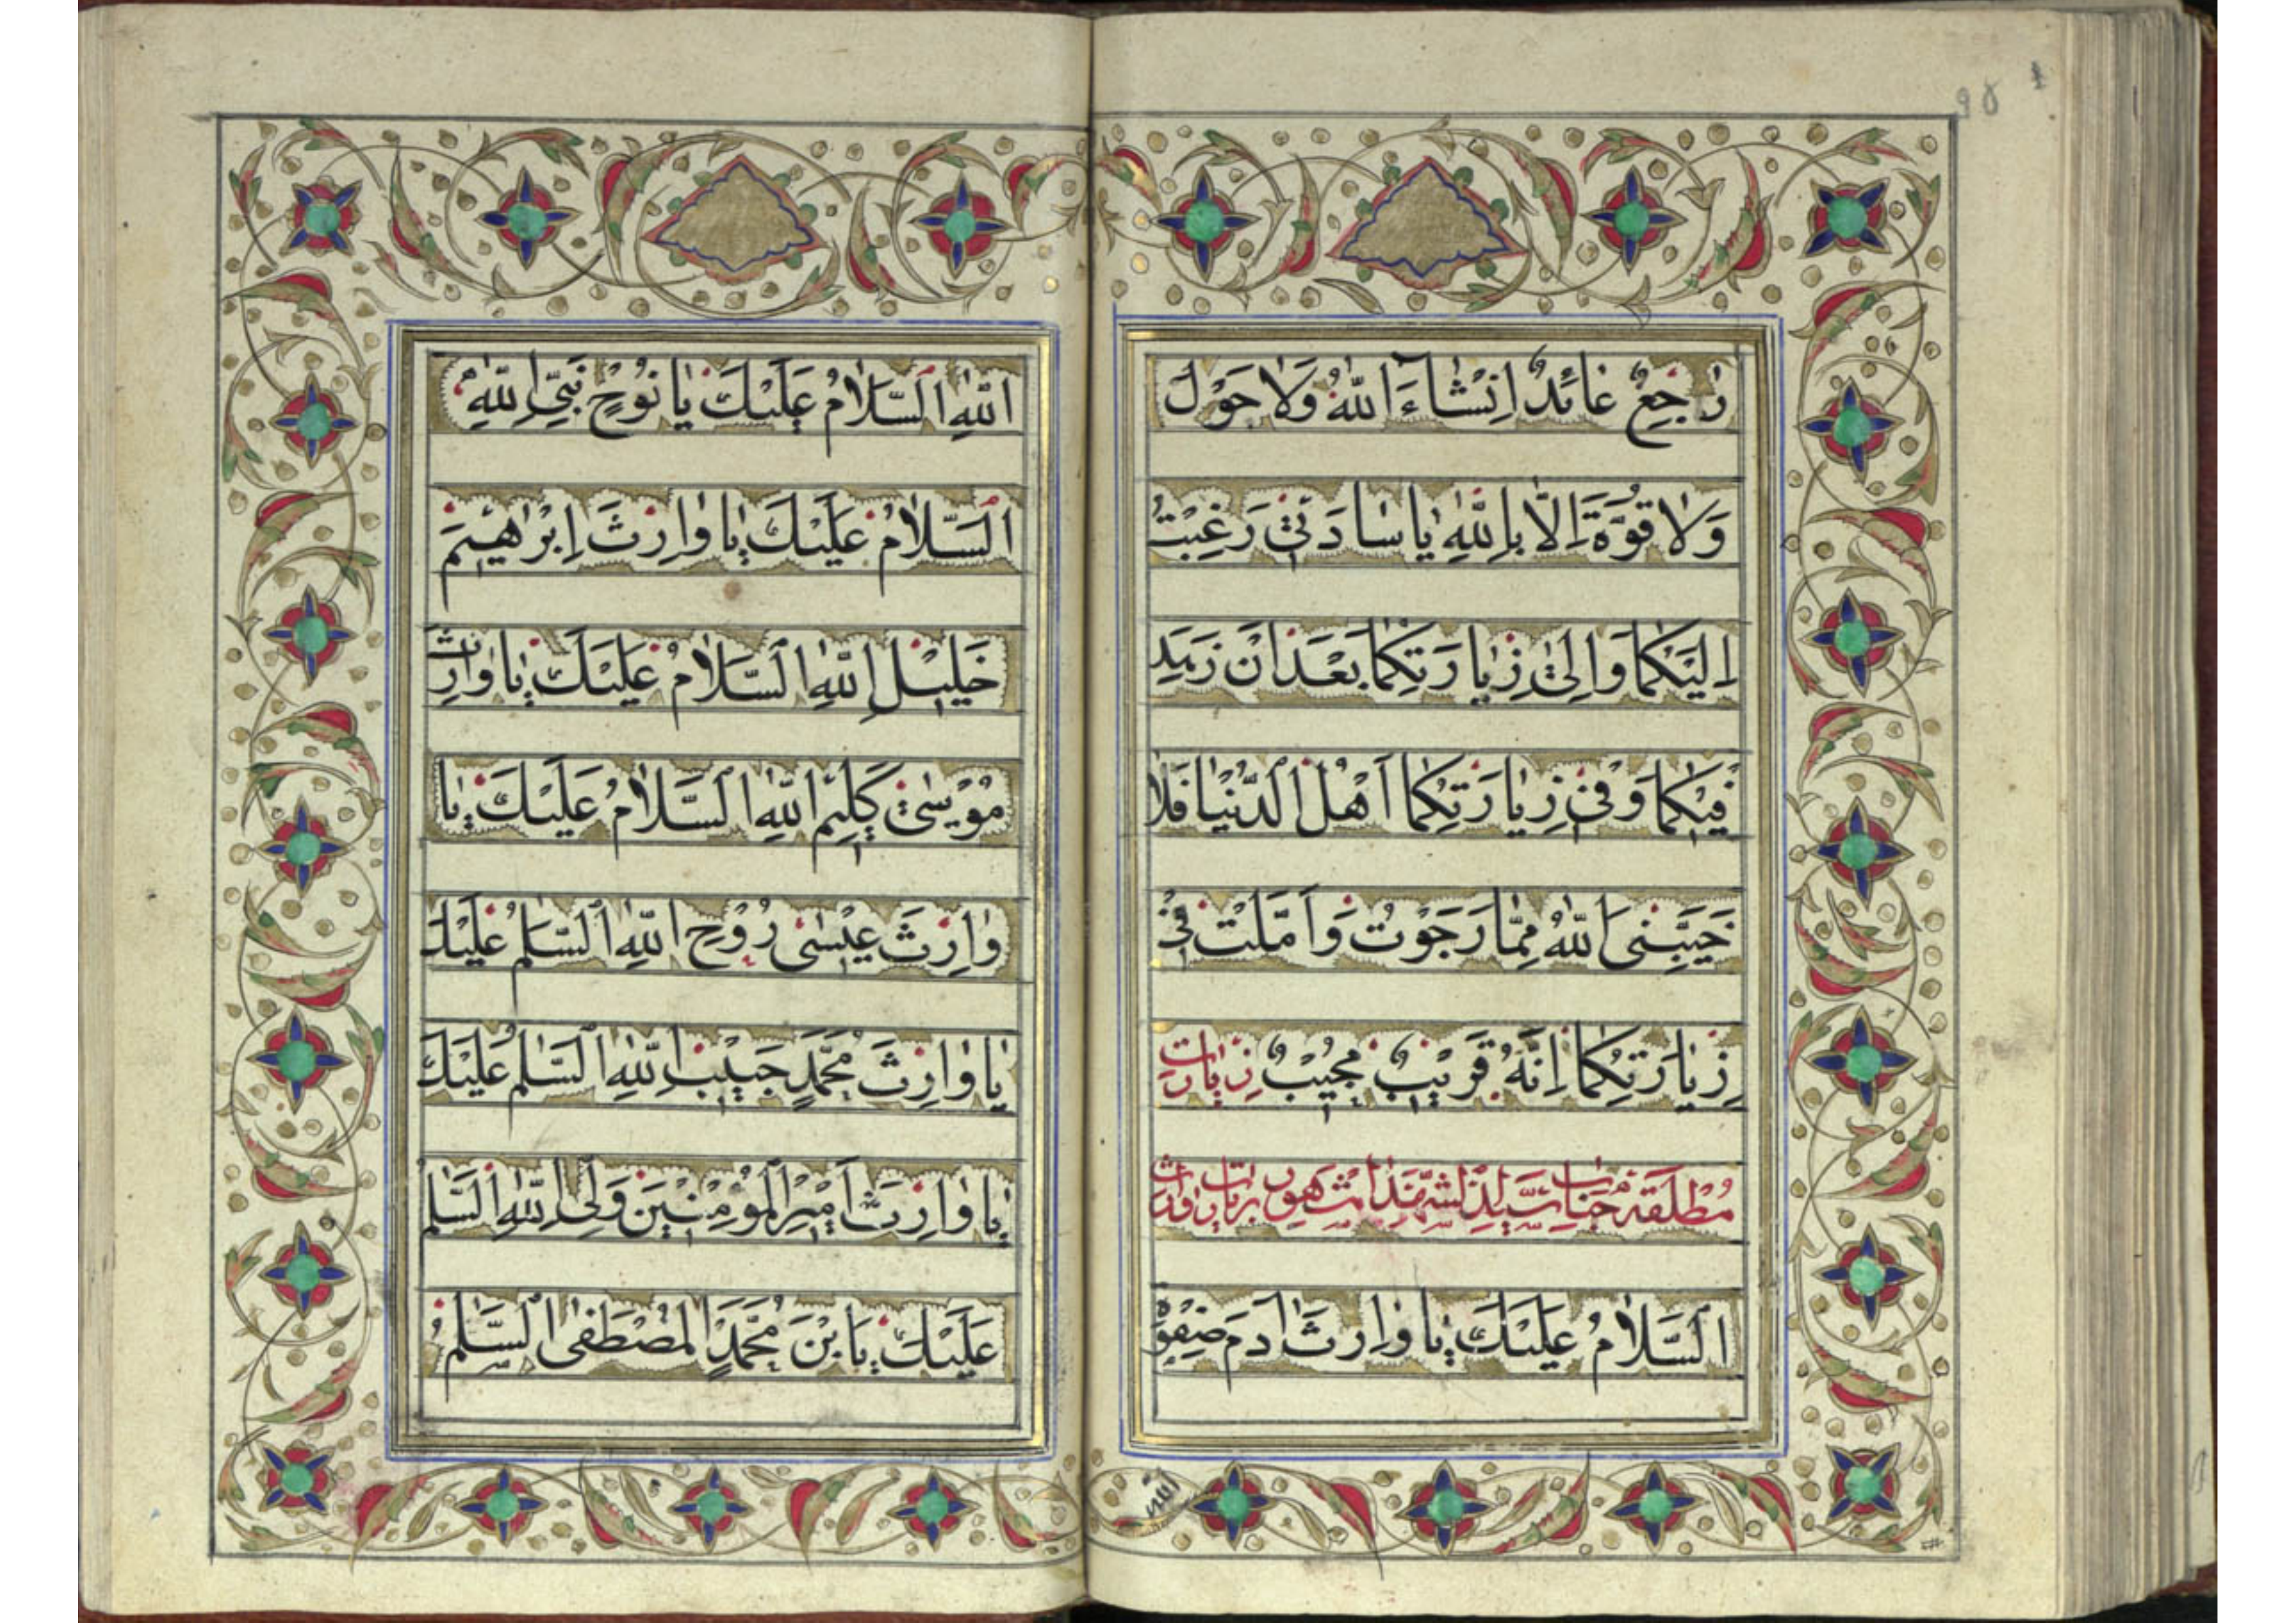 رٰاجِعٌ عٰائِدٌ اِنْشٰاءَ اللّٰهُ وَلاٰ حَوْلَ
وَلاٰ قُوَّةَ اِلاّٰ بِاللّٰهِ يٰا سٰادَتىٖ رَغِبْتُ
اِلَيْكُمٰا وَاِلىٰ زِيٰارَتِكُمٰا بَعْدَ اَنْ زَهِدَ
فيٖكُمٰا وَفىٖ زِيٰارَتِكُمٰا اَهْلُ الدُّنْيٰا فَلاٰ
خَيَّبَنِىَ اللّٰهُ مِمّٰا رَجَوْتُ وَاَمَّلْتُ فىٖ
زِيٰارَتِكُمٰا اِنَّهُ قَريٖبٌ مُجيٖبٌ زيارت
مطلقه جناب سيد الشهدا مشهور بزيارت وارث
اَلسَّلاٰمُ عَلَيْكَ يٰا وٰارِثَ اٰدَمَ صَفْوَةِ
اللّٰهِ اَلسَّلاٰمُ عَلَيْكَ يٰا نُوْحٍ نَبِىِّ اللّٰهِ
اَلسَّلاٰمُ عَلَيْكَ يٰا وٰارِثَ اِبْرٰاهيٖمَ
خَليٖلِ اللّٰهِ اَلسَّلاٰمُ عَلَيْكَ يٰا وٰارِثَ
مُوْسىٰ كَليٖمِ اللّٰهِ اَلسَّلاٰمُ عَلَيْكَ يٰا
وٰارِثَ عيٖسىٰ رُوْحِ اللّٰهِ اَلسَّلٰمُ عَلَيْكَ
يٰا وٰارِثَ مُحَمَّدٍ حَبيٖبِ اللّٰهِ اَلسَّلٰمُ عَلَيْكَ
يٰا وٰارِثَ اَميٖرِ الْمُؤْمِنيٖنَ وَلِىِّ اللّٰهِ اَلسَّلٰمُ
عَلَيْكَ يَابْنَ مُحَمَّدٍ الْمُصْطَفىٰ اَلسَّلٰمُ
اللّٰه